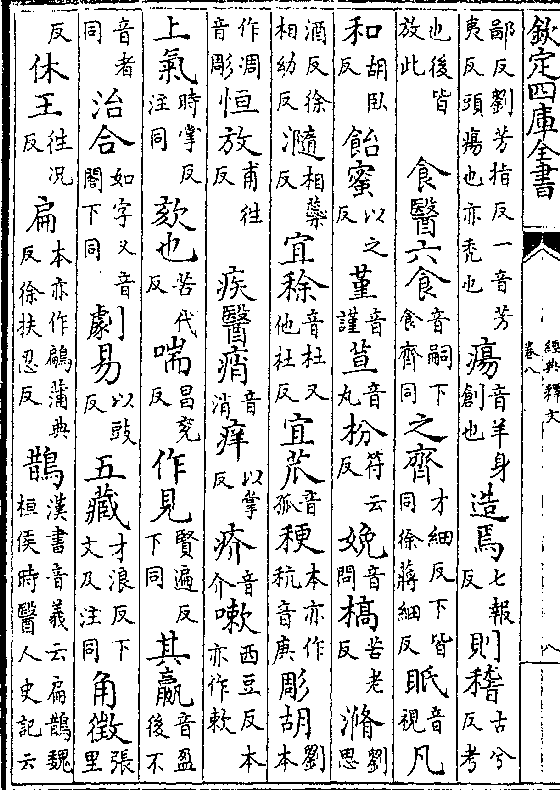 欽定四庫全書
鄙反劉芳指反一音芳夷反頭瘍也亦禿也瘍音羊身創也造焉七報反則稽古兮反考
也後皆放此食醫六食音嗣下食齊同之齊才細反下皆同徐蔣細反眡音視凡
和胡臥反飴蜜以之反堇音謹荁音丸枌符云反娩音問槁苦老反滫劉思
酒反徐相幼反瀡相蘂反宜稌音杜又他杜反宜苽音孤稉本亦作秔音庚彫胡劉本
作凋音彫恒放甫往反疾醫痟音消痒以掌反疥音介嗽西豆反本亦作欶
上氣時掌反注同欬也苦代反喘昌兖反作見賢遍反下同其贏音盈後不
音者同治合如字又音閤下同劇易以豉反五藏才浪反下文及注同角徵張里
反休王往况反扁本亦作鶣蒲典反徐扶忍反鵲漢書音義云扁鵲魏桓侯時醫人史記云
經典釋文
卷八
八